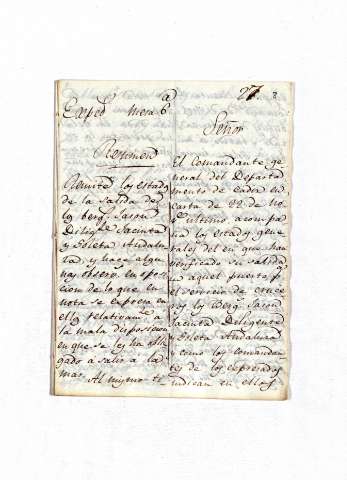 27. 8
Exped.te Mesa 6.a
Señor
Resumen
Remite los estados
de la salida de
los berg.s Jason
Dilig.te Jacinta
y Goleta Andalu
za, y hace algu
nas observ. en oposi
cion de lo que en
nota se expresa en
ellos relativam.te a
la mala disposicion
en que se les ha obli
gado a salir a la
mar.
Al mismo te
El Comandante ge
neral del Departa
mento de Cadiz en
Carta de 22 de No
bre ultimo acompa
ña los estados gene
rales del en que han
verificado su salida
de aquel puerto p.a
el servicio de cruce
ros los Berg.s Jason
Jacinta Diligente
y Goleta Andaluza
y como los comandan
tes de los expresados
indican en ellos